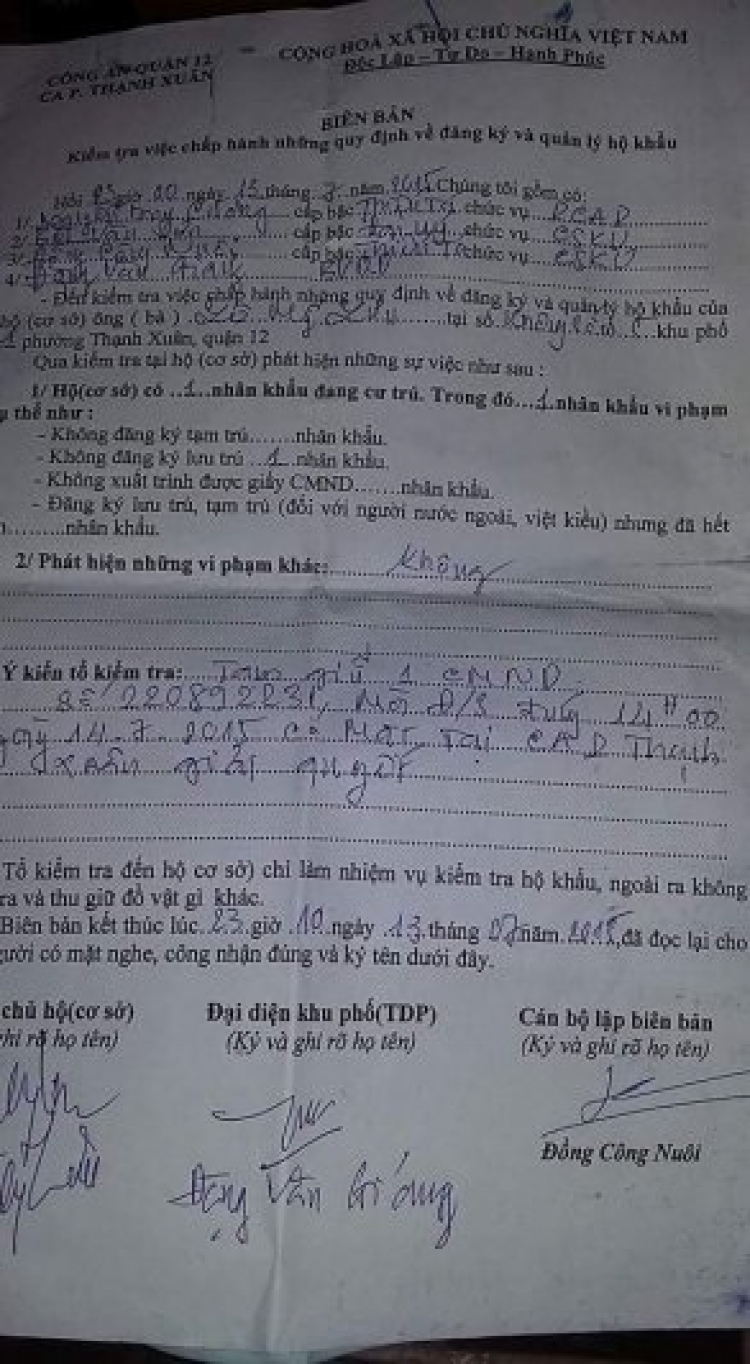 CÔNG AN QUẬN 12
CA P. THẠNH XUÂN
CỘNG HOÀ XÃ HỘI CHỦ NGHĨA VIỆT NAM
Độc Lập – Tự Do – Hạnh Phúc
BIÊN BẢN
Kiểm tra việc chấp hành những quy định về đăng ký và quản lý hộ khẩu
Hồi 23 giờ 00 ngày 13 tháng 7 năm 2015 Chúng tôi gồm có:
1/ cấp bậc chức vụ
2/ Văn cấp bậc chức vụ CSKV
3/ Công cấp bậc chức vụ CSKV
4/ Đặng Văn
- Đến kiểm tra việc chấp hành những quy định về đăng ký và quản lý hộ khẩu của
hộ (cơ sở) ông ( bà ) tại số Không số tổ khu phố
1 phường Thạnh Xuân, quận 12
Qua kiểm tra tại hộ (cơ sở) phát hiện những sự việc như sau :
1/ Hộ(cơ sở) có ..1..nhân khẩu đang cư trú. Trong đó...1.nhân khẩu vi phạm
thể như :
- Không đăng ký tạm trú.......nhân khẩu.
- Không đăng ký lưu trú ..1..nhân khẩu.
- Không xuất trình được giấy CMND.......nhân khẩu.
- Đăng ký lưu trú, tạm trú (đối với người nước ngoài, việt kiều) nhưng đã hết
.........nhân khẩu.
2/ Phát hiện những vi phạm khác: Không
Ý kiến tổ kiểm tra: Tạm giữ 1 CMND
số 220892231, Mời Đ/S đúng 14H00
ngày 14.7.2015 có Mặt tại CAP Thạnh
xuân giải quyết
Tổ kiểm tra đến hộ cơ sở) chỉ làm nhiệm vụ kiểm tra hộ khẩu, ngoài ra không
ra và thu giữ đồ vật gì khác.
Biên bản kết thúc lúc 23 giờ 10 ngày 13 tháng 07 năm 2015, đã đọc lại cho
người có mặt nghe, công nhận đúng và ký tên dưới đây.
chủ hộ(cơ sở)
ghi rõ họ tên)
Đại diện khu phố(TDP)
(Ký và ghi rõ họ tên)
Cán bộ lập biên bản
(Ký và ghi rõ họ tên)
Đặng Văn Giáng
Đồng Công Nuôi